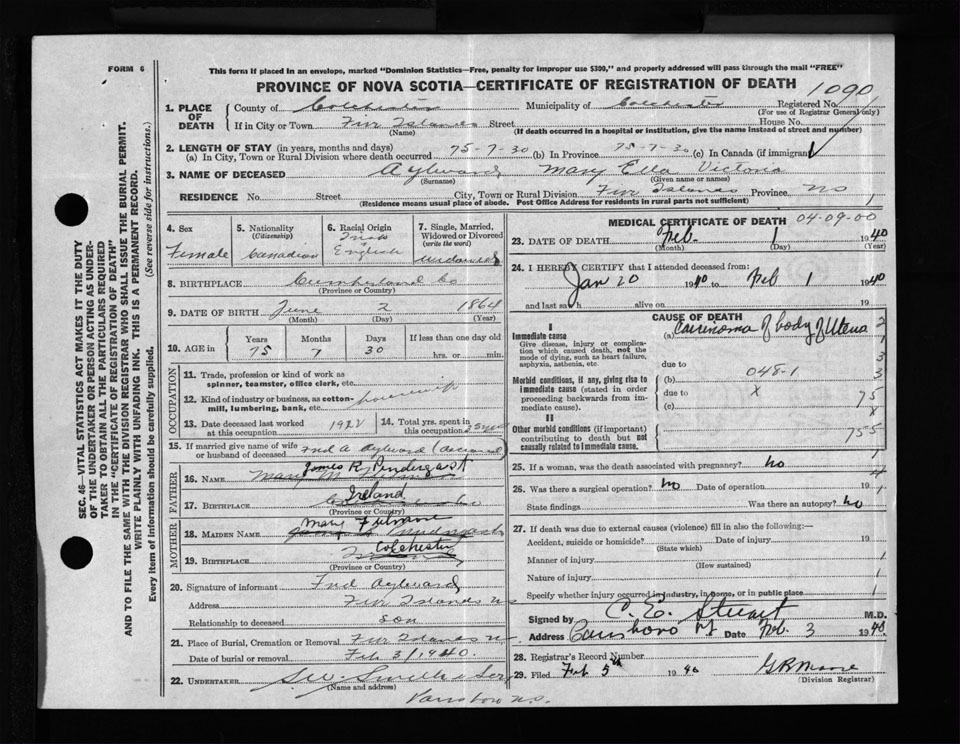 FORM 6
This form if placed in an envelope, marked "Dominion Statistics—Free, penalty for improper use $300," and properly addressed will pass through the mail "FREE"
PROVINCE OF NOVA SCOTIA—CERTIFICATE OF REGISTRATION OF DEATH
1090
1. PLACE OF DEATH
County of Colchester Municipality of Colchester Registered No.
(For use of Registrar General only)
If in City or Town Five Islands Street House No.
(Name) (If death occurred in a hospital or institution, give the name instead of street and number)
2. LENGTH OF STAY (in years, months and days)
(a) In City, Town or Rural Division where death occurred 75-7-30 (b) In Province 75-7-30 (c) In Canada (if immigrant)
3. NAME OF DECEASED Aylward Mary Ella Victoria
(Surname) (Given name or names)
RESIDENCE No. Street City, Town or Rural Division Five Islands Province NS
(Residence means usual place of abode. Post Office Address for residents in rural parts not sufficient)
4. Sex
Female
5. Nationality (Citizenship)
Canadian
6. Racial Origin
Irish
English
7. Single, Married, Widowed or Divorced (write the word)
Widowed
8. BIRTHPLACE Cumberland Co
(Province or Country)
9. DATE OF BIRTH June 2 1864
(Month) (Day) (Year)
10. AGE in
Years Months Days If less than one day old
75 7 30 hrs. or min.
OCCUPATION
11. Trade, profession or kind of work as spinner, teamster, office clerk, etc.
12. Kind of industry or business, as cotton-mill, lumbering, bank, etc. housewife
13. Date deceased last worked at this occupation 1922
14. Total yrs. spent in this occupation
15. If married give name of wife or husband of deceased Fred A Aylward (deceased
FATHER
16. NAME James R Pendergast
17. BIRTHPLACE Ireland
(Province or Country)
MOTHER
18. MAIDEN NAME Mary
19. BIRTHPLACE Colchester
(Province or Country)
20. Signature of informant Fred Aylward
Address Five Islands NS
Relationship to deceased son
21. Place of Burial, Cremation or Removal Five Islands
Date of burial or removal Feb 3/1940.
22. UNDERTAKER
(Name and address)
Parrsboro N.S.
MEDICAL CERTIFICATE OF DEATH 04-09-00
23. DATE OF DEATH Feb. 1 1940
(Month) (Day) (Year)
24. I HEREBY CERTIFY that I attended deceased from:
Jan 20 1940 to Feb 1 1940
and last saw h alive on 19
CAUSE OF DEATH
I
Immediate cause
Give disease, injury or complication which caused death, not the mode of dying, such as heart failure, asphyxia, asthenia, etc.
(a) Carcinoma of body of Uterus
due to
Morbid conditions, if any, giving rise to immediate cause (stated in order proceeding backwards from immediate cause).
(b) 048-1
due to x
(c)
II
Other morbid conditions (if important) contributing to death but not causally related to immediate cause.
75
755
25. If a woman, was the death associated with pregnancy? no
26. Was there a surgical operation? no Date of operation 19
State findings Was there an autopsy? no
27. If death was due to external causes (violence) fill in also the following:—
Accident, suicide or homicide? Date of injury 19
(State which)
Manner of injury
(How sustained)
Nature of injury
Specify whether injury occurred in industry, in home, or in public place
Signed by C. E. Stuart M.D.
Address Parrsboro NS Date Feb. 3 1940
28. Registrar's Record Number
29. Filed Feb 5th 1940 G R Moore
(Division Registrar)
SEC. 46—VITAL STATISTICS ACT MAKES IT THE DUTY
OF THE UNDERTAKER OR PERSON ACTING AS UNDERTAKER TO OBTAIN ALL THE PARTICULARS REQUIRED
IN THE "CERTIFICATE OF REGISTRATION OF DEATH"
AND TO FILE THE SAME WITH THE DIVISION REGISTRAR WHO SHALL ISSUE THE BURIAL PERMIT.
WRITE PLAINLY WITH UNFADING INK. THIS IS A PERMANENT RECORD.
Every item of information should be carefully supplied. (See reverse side for instructions.)